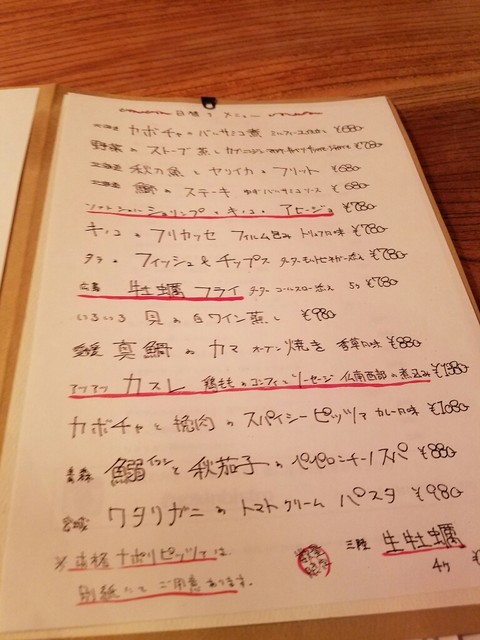 日替りメニュー
北海道 カボチャのバルサミコ煮 ¥680
野菜のストーブ蒸し ¥780
北海道 秋刀魚とヤリイカのフリット ¥680
北海道 鰤のステーキ バルサミコソース ¥680
ソフトシェルシュリンプとキノコのアヒージョ ¥780
キノコのフリカッセ フィルム包み トリュフ風味 ¥780
タラのフィッシュ&チップス タルタルモルトビネガー添え ¥780
広島 牡蠣フライ タルタル コールスロー添え 5ヶ ¥780
いろいろ貝の白ワイン蒸し ¥980
愛媛 真鯛のカマ オーブン焼き 香草風味 ¥880
アツアツ カスレ 鶏もものコンフィとソーセージ 仏南西部の煮込み ¥1380
カボチャと挽肉のスパイシーピッツァ カレー風味 ¥1080
青森 鰯イワシと秋茄子のペペロンチーノスパ ¥880
宮城 ワタリガニのトマトクリームパスタ ¥980
※本格ナポリピッツァは
別紙にてご用意あります。
数量限定 三陸 生牡蠣
4ヶ ¥